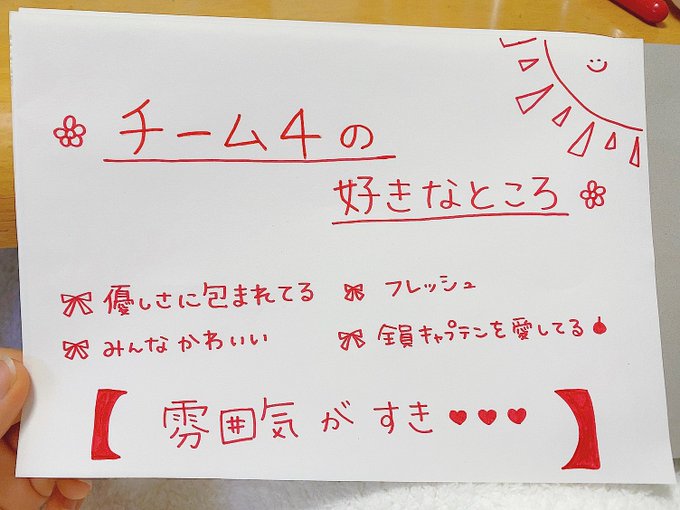 チーム4の
好きなところ
優しさに包まれてる フレッシュ
みんなかわいい 全員キャプテンを愛してる
【雰囲気がすき♥♥♥】